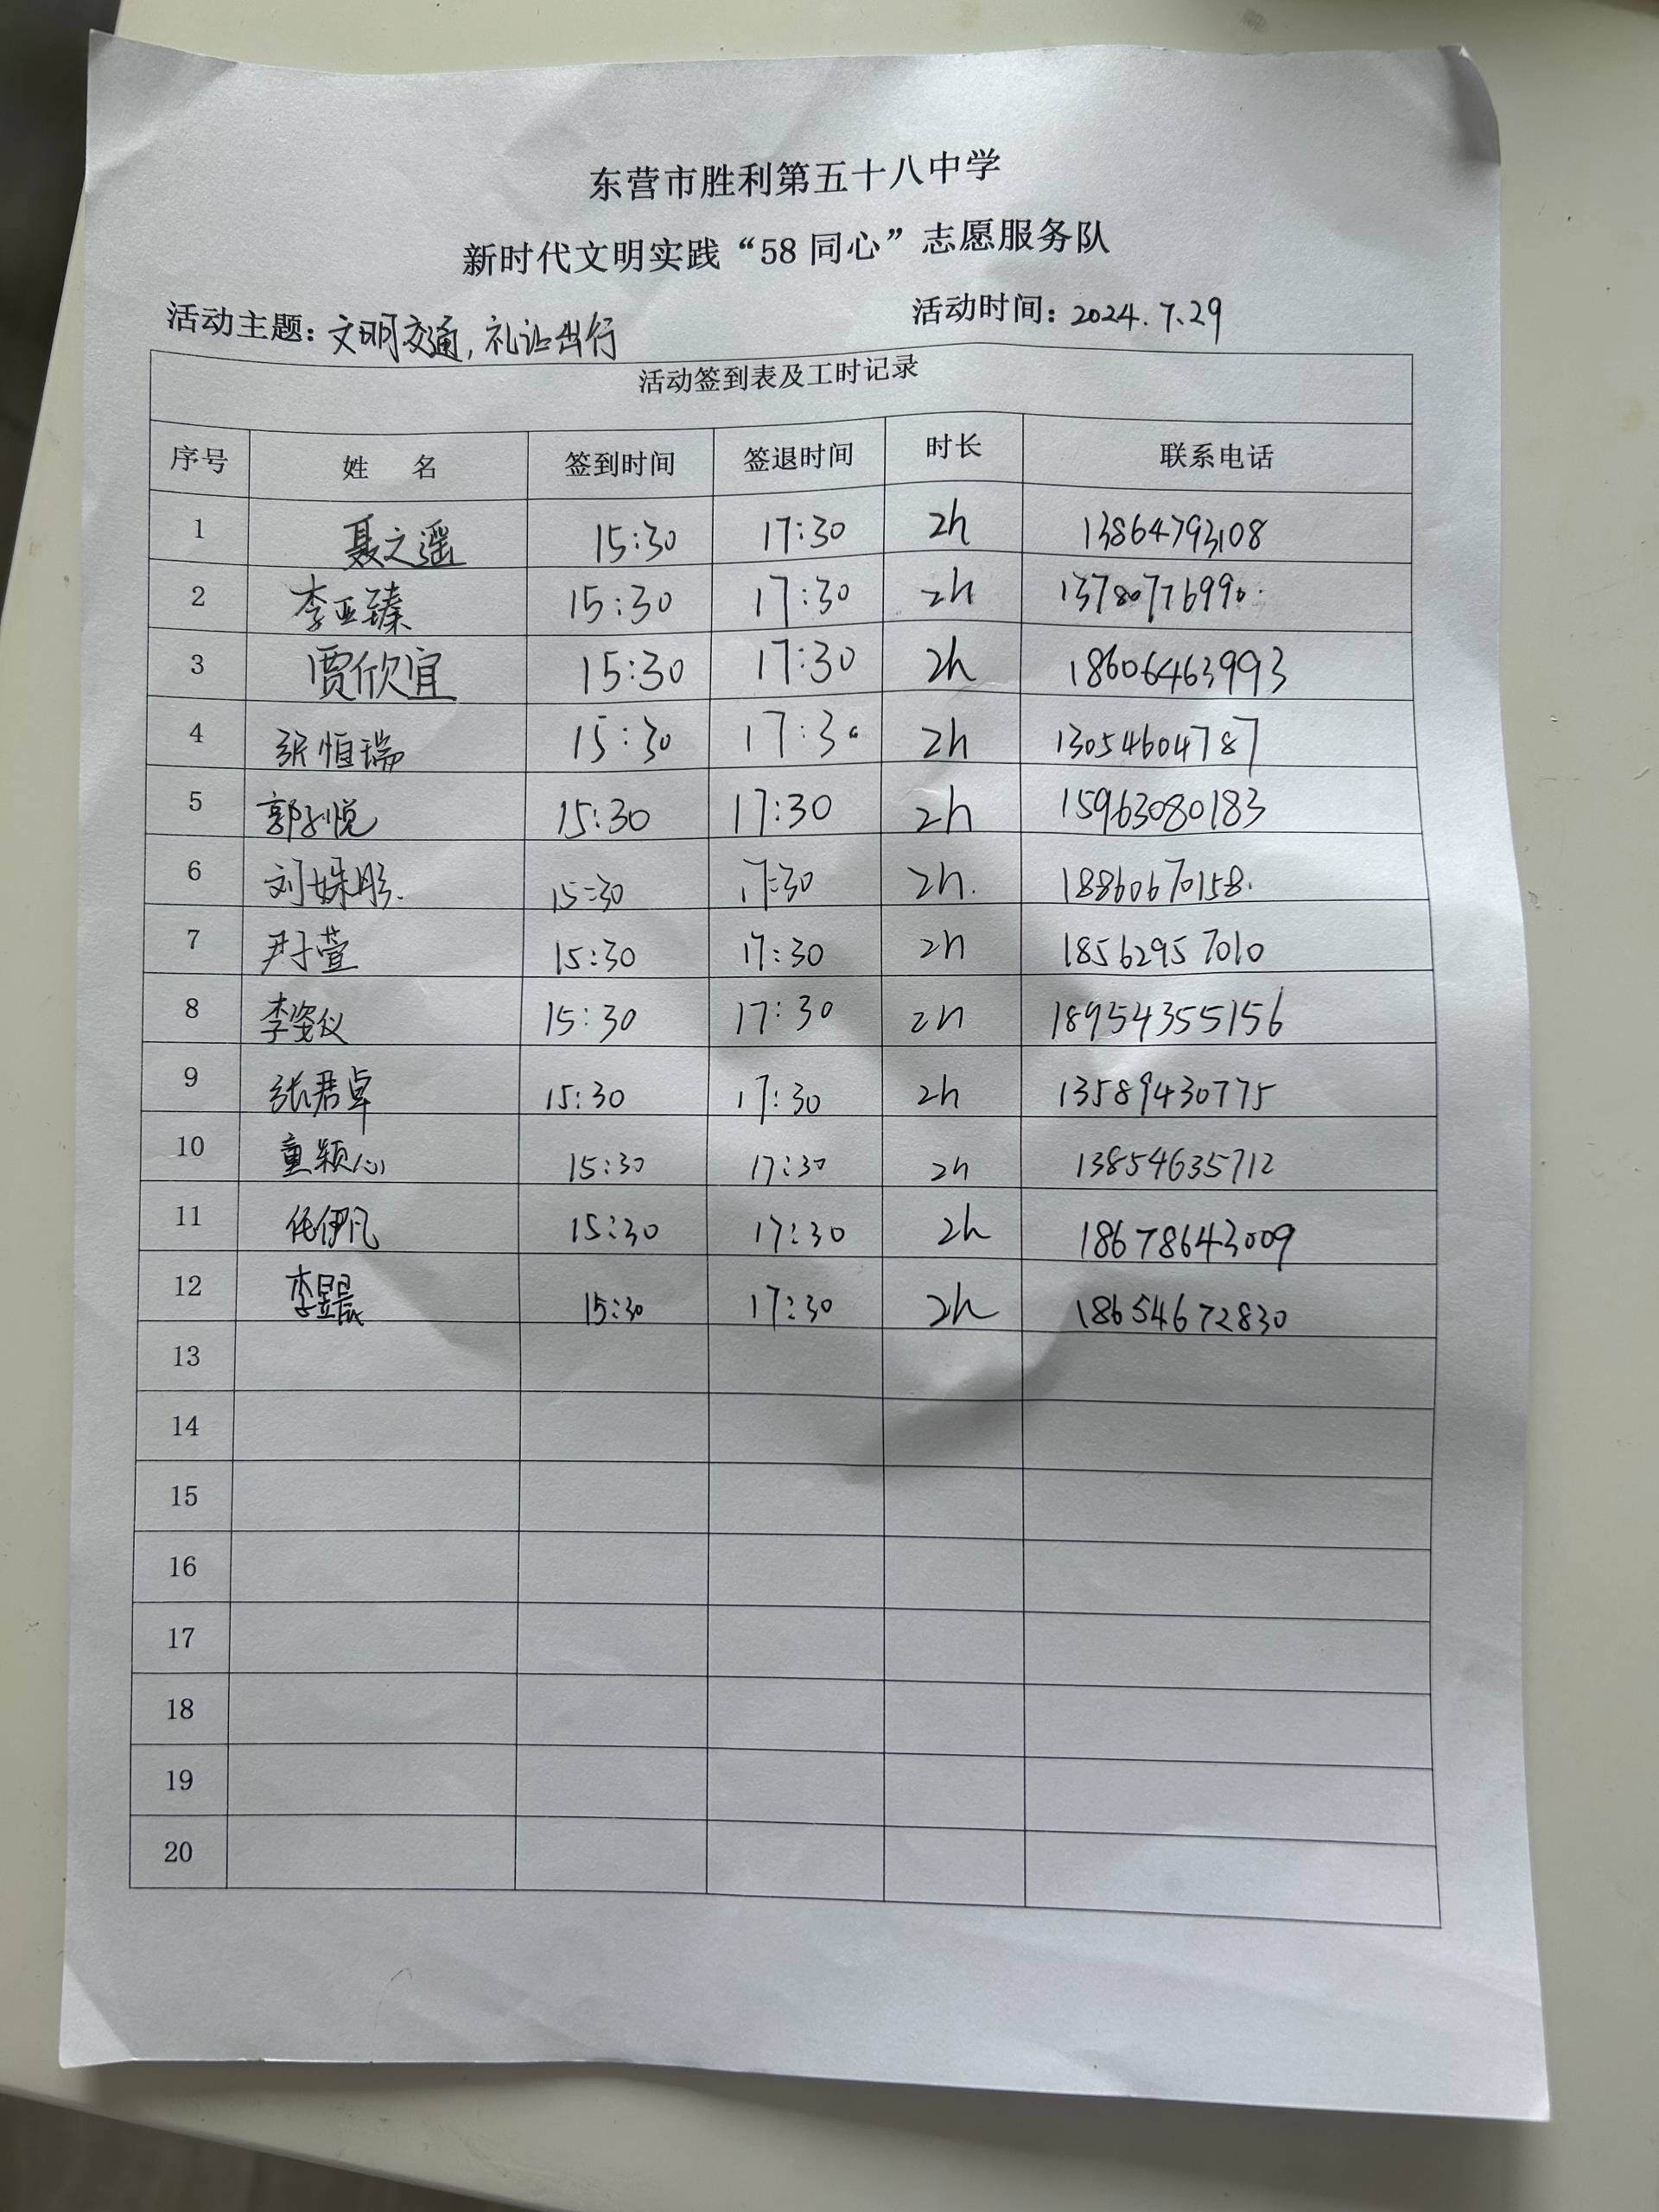 东营市胜利第五十八中学
新时代文明实践“58 同心”志愿服务队
活动主题：文明交通，礼让出行 活动时间：2024.7.29
活动签到表及工时记录
序号 姓 名 签到时间 签退时间 时长 联系电话
1 聂之遥 15:30 17:30 2h 13864793108
2 李亚臻 15:30 17:30 2h 13780776990
3 贾欣宜 15:30 17:30 2h 18606463993
4 张恒瑞 15:30 17:30 2h 13054604787
5 郭子悦 15:30 17:30 2h 15963080183
6 刘姝彤. 15:30 17:30 2h. 18860670158.
7 尹子萱 15:30 17:30 2h 18562957010
8 李姿仪 15:30 17:30 2h 18954355156
9 张君卓 15:30 17:30 2h 13589430775
10 董颖心 15:30 17:30 2h 13854635712
11 任伊凡 15:30 17:30 2h 18678643009
12 李昱晨 15:30 17:30 2h 18654672830
13
14
15
16
17
18
19
20